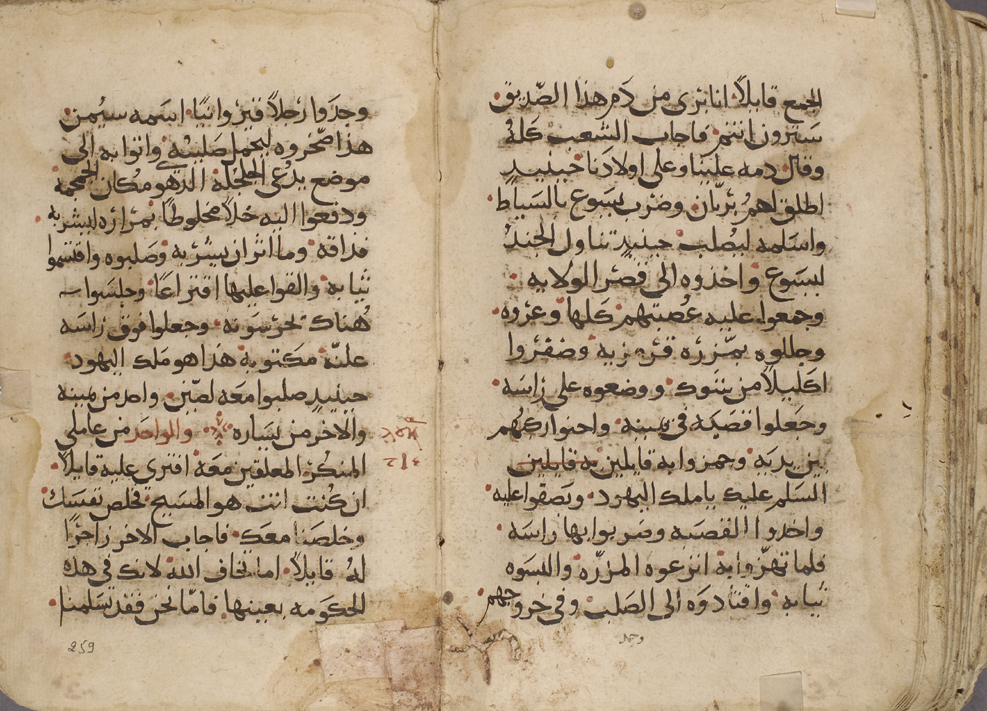 الجمع قايلاً انا بري من دم هذا الصديق
سترون انتم فاجاب الشعب كله
وقال دمه علينا وعلى اولادنا حينيد
اطلق لهم بربان وضرب يسوع بالسياط
واسلمه ليصلب حينيد تناول الجند
ليسوع واخذوه الى قصر الولايه
وجمعوا عليه عصبتهم كلها وعروه
وجللوه بميزره قرمزيه وضفروا
اكليلاً من شوك ووضعوه على راسه
وجعلوا قصبه في يمينه واحنوا ركبهم
بين يديه وهمزوا به قايلين
السلم عليك ياملك اليهود وبصقوا عليه
واخذوا القصبه وضربوا بها راسه
فلما تهزوا به انزعوه المزره والبسوه
ثيابه واقتادوه الى الصلب وفي خروجهم
وجد
وجدوا رجلاً قيروانيًا اسمه سيمن
هذا سخروه لحمل صليبه واتوا به الى
موضع يدعى الجلجلة الدي هو مكان الجمجمه
ودفعوا اليه خلاً مخلوطًا بمراره ليشربه
فداقه وما اثر ان يشربه وصلبوه واقتسموا
ثيابه والقوا عليها اقتراعًا وجلسوا
هناك يحرسونه وجعلوا فوق راسه
علته مكتوبه هذا هو ملك اليهود
حينيد صلبوا معه لصين واحد من يمينه
والاخر من يساره والواحد من عاملي
المنكر المعلقين معه افترى عليه قايلاً
ان كنت انت هو المسيح فخلص نفسك
وخلصنا معك فاجاب الاخر زاجرًا
له قايلاً اما تخاف الله لانك في هده
الحكومه بعينها فاما نحن فقد تسلمنا
259